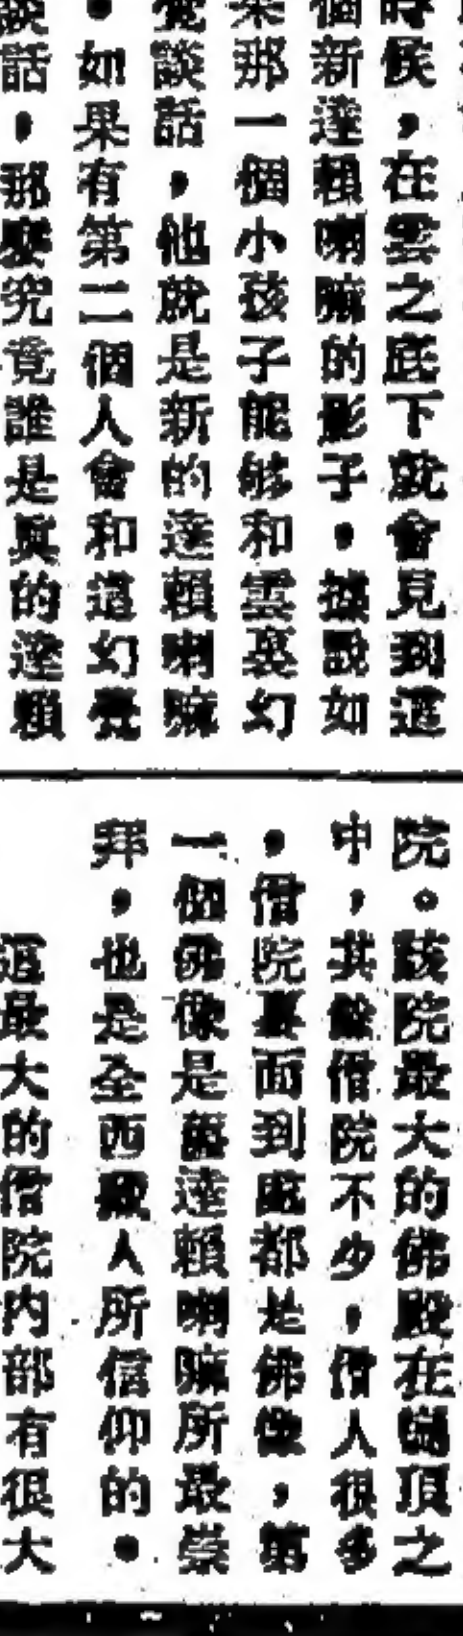 時候，在雲之底下就會見到這
個新達賴喇嘛的影子，據說如
果那一個小孩子能够和雲裏幻
覺談話，他就是新的達賴喇嘛
。如果有第二個人會和這幻覺
談話，那麼究竟誰是眞的達賴
院。該院最大的佛殿在頂之
中，其餘僧院不少，僧人很多
，僧院裏面到處都是佛像，第
一個佛像是舊達賴喇嘛所最崇
拜，也是全西藏人所信仰的。
這最大的僧院內部有很大